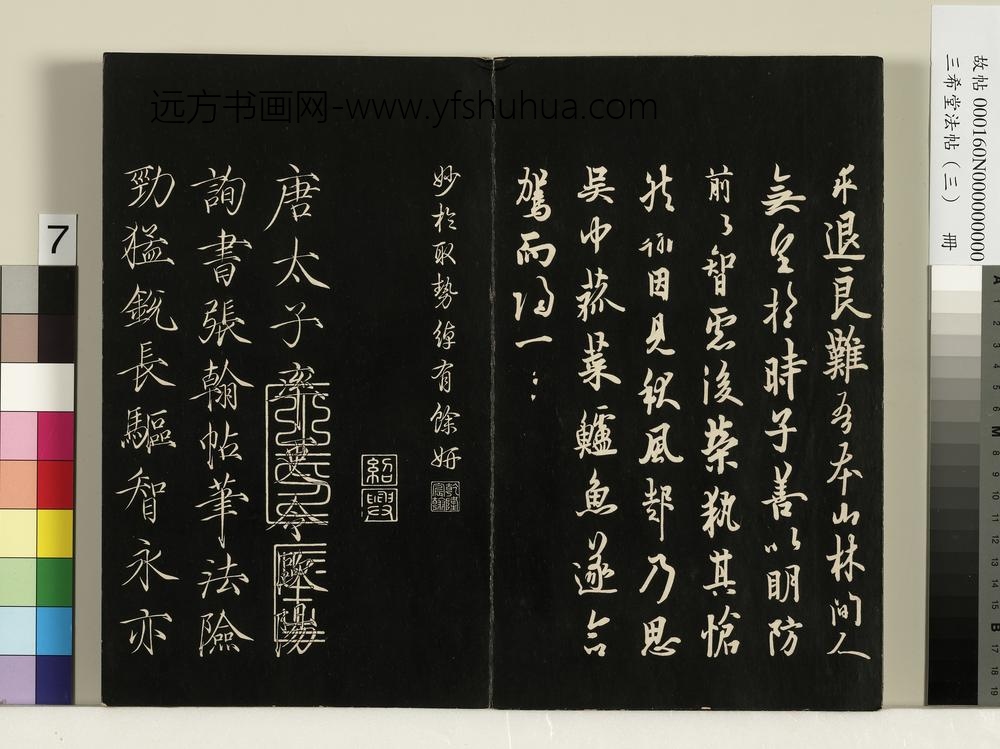 故帖 000160N000000000
三希堂法帖（三） 冊
求退良難吾本山林間人
無望於時子善以明防
前以智慮後榮執其愴
然翰因見秋風起乃思
吳中菰菜鱸魚遂命
駕而歸
妙於取勢綽有餘妍
乾隆宸翰
紹興
唐太子率更令歐陽
詢書張翰帖筆法險
勁猛銳長驅智永亦
远方书画网-www.yfshuhua.com
7